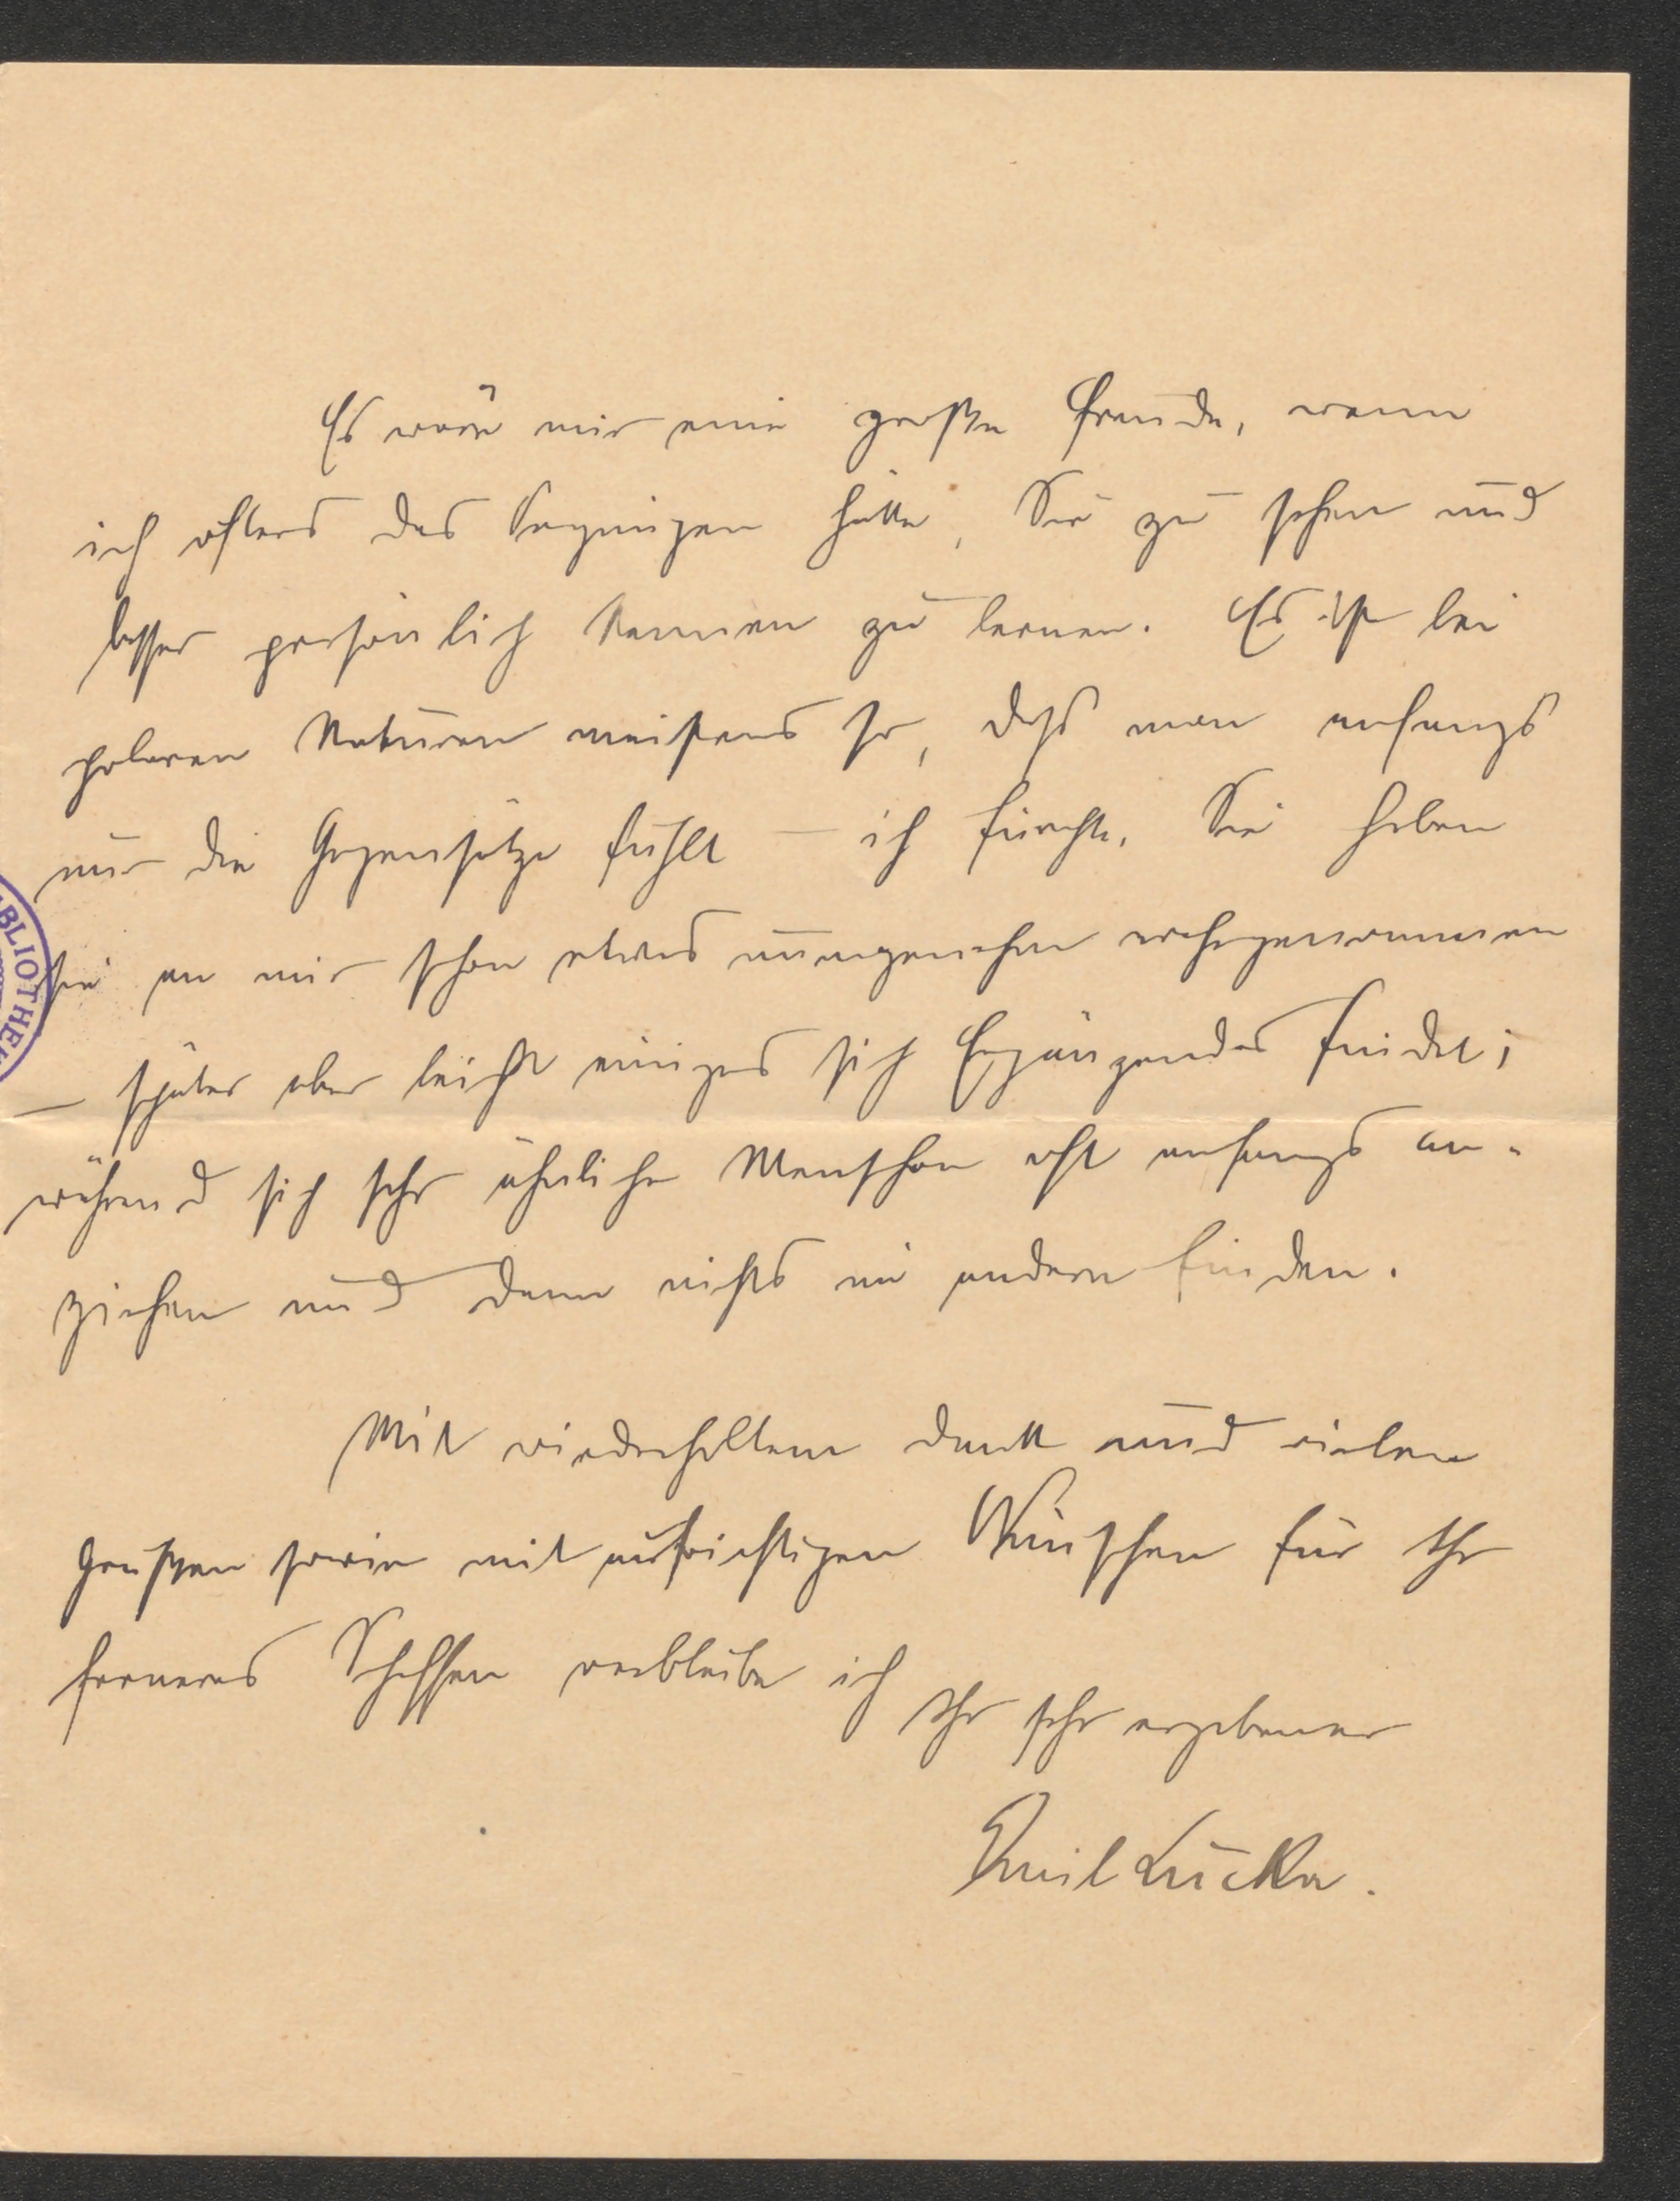 Es wäre mir eine große Freude, wenn
ich öfters das Vergnügen hätte, Sie zu sehen und
besser persönlich kennen zu lernen. Es ist bei
polaren Naturen meistens so, daß man anfangs
nur die Gegensätze fühlt – ich fürchte, Sie haben
sie an mir schon etwas unangenehm wahrgenommen
– später aber leicht einiges sich Ergänzendes findet;
während sich sehr ähnliche Menschen oft anfangs an-
ziehen und dann nichts im andern finden.
Mit wiederholtem Dank und vielen
Grüßen sowie mit aufrichtigen Wünschen für Ihr
ferneres Schaffen verbleibe ich
Ihr sehr ergebener
Emil Lucka.
BLIOTHEK